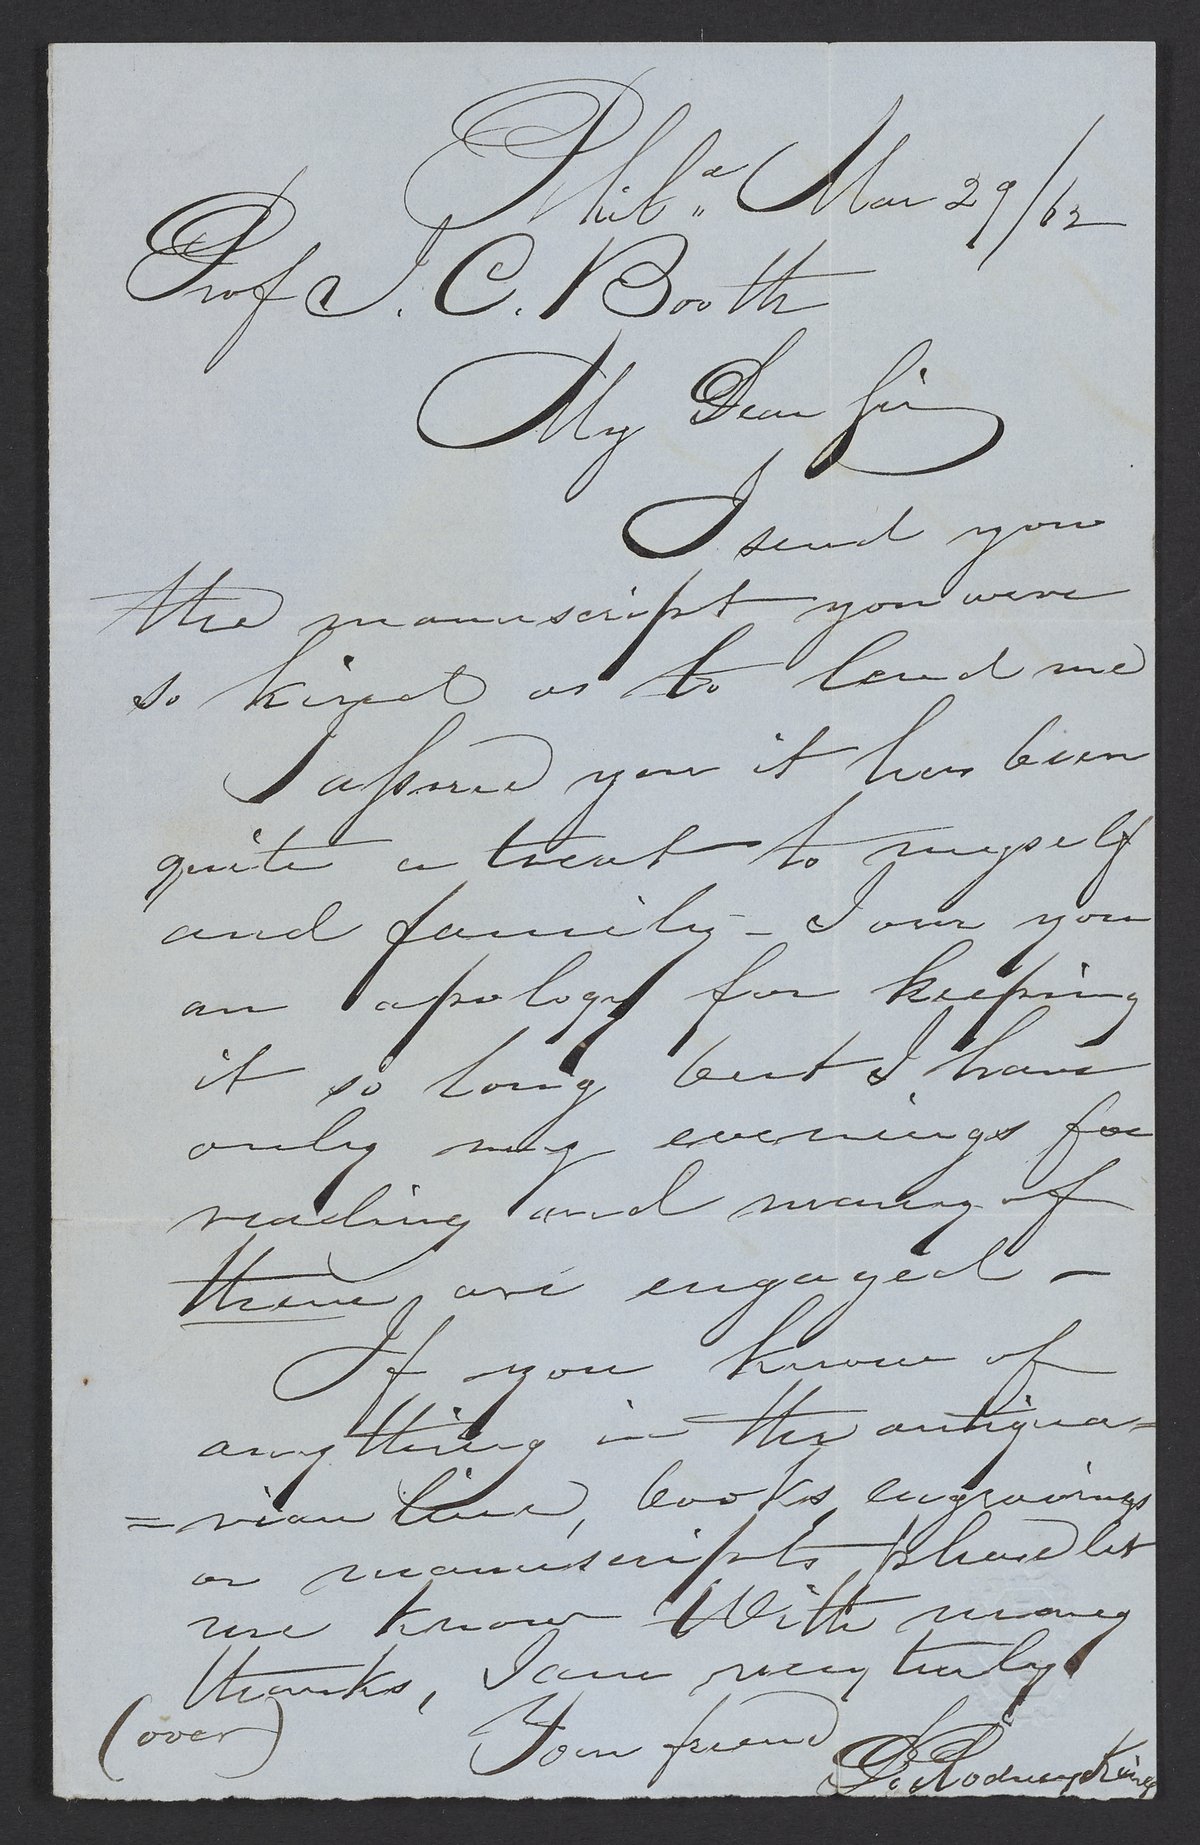 Phila Mar 29/62
Prof J. C. Booth
My Dear Sir
I send you
the manuscript you were
so kind as to lend me
I assure you it has been
quite a treat to myself
and family - I owe you
an apology for keeping
it so long but I have
only my evenings for
reading and many of
them are engaged -
If you know of
any thing in the antiqua=
=rian line, books, engravings
or manuscripts please let
me know With many
thanks, I am very truly
(over) Your friend
D. Rodney King